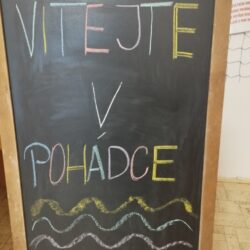 VÍTEJTE
V
POHÁDCE